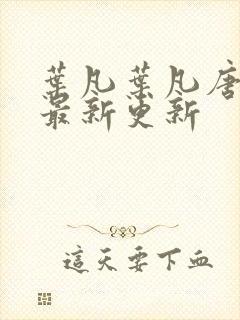 葉凡葉凡唐
最新更新
這天要下血